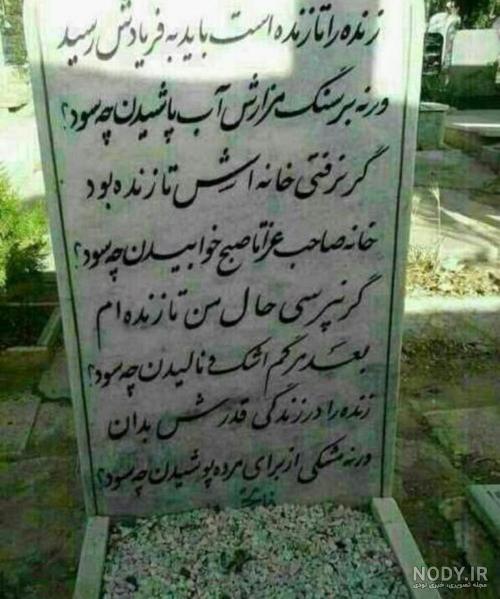 زنده را تا زنده است باید به فریادش رسید
ورنه بر سنگ مزارش آب پاشیدن چه سود؟
گر نرفتی خانه اش تا زنده بود
خانه صاحب عزا تا صبح خوابیدن چه سود؟
گر نپرسی حال من تا زنده ام
بعد مرگم اشک و نالیدن چه سود؟
زنده را در زندگی قدرش بدان
ورنه مشکی از برای مرده پوشیدن چه سود؟
NODY.IR
مجله تصویری، خبری نودی